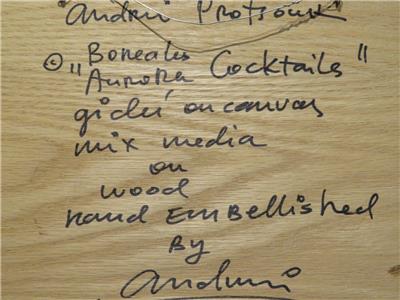 "Andrii Protsouk"
© "Borealis
Aurora Cocktails"
giclé on canvas
mix media
on
wood
Hand EmBellished
By
Andrii